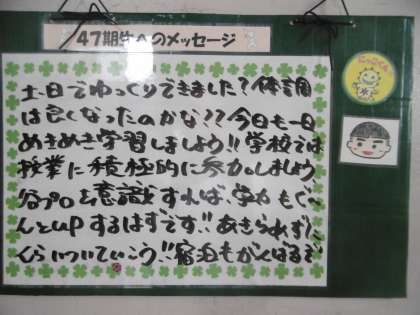 47期生へのメッセージ
土日でゆっくりできました?体調
は良くなったのかな??今日も一日
めきめき学習しましょう!!学校では
授業に積極的に参加しましょう
プロを意識すれば、学力もぐ
んとupするはずです!!あきらめず
についていこう!!宿泊もがんばるぞ